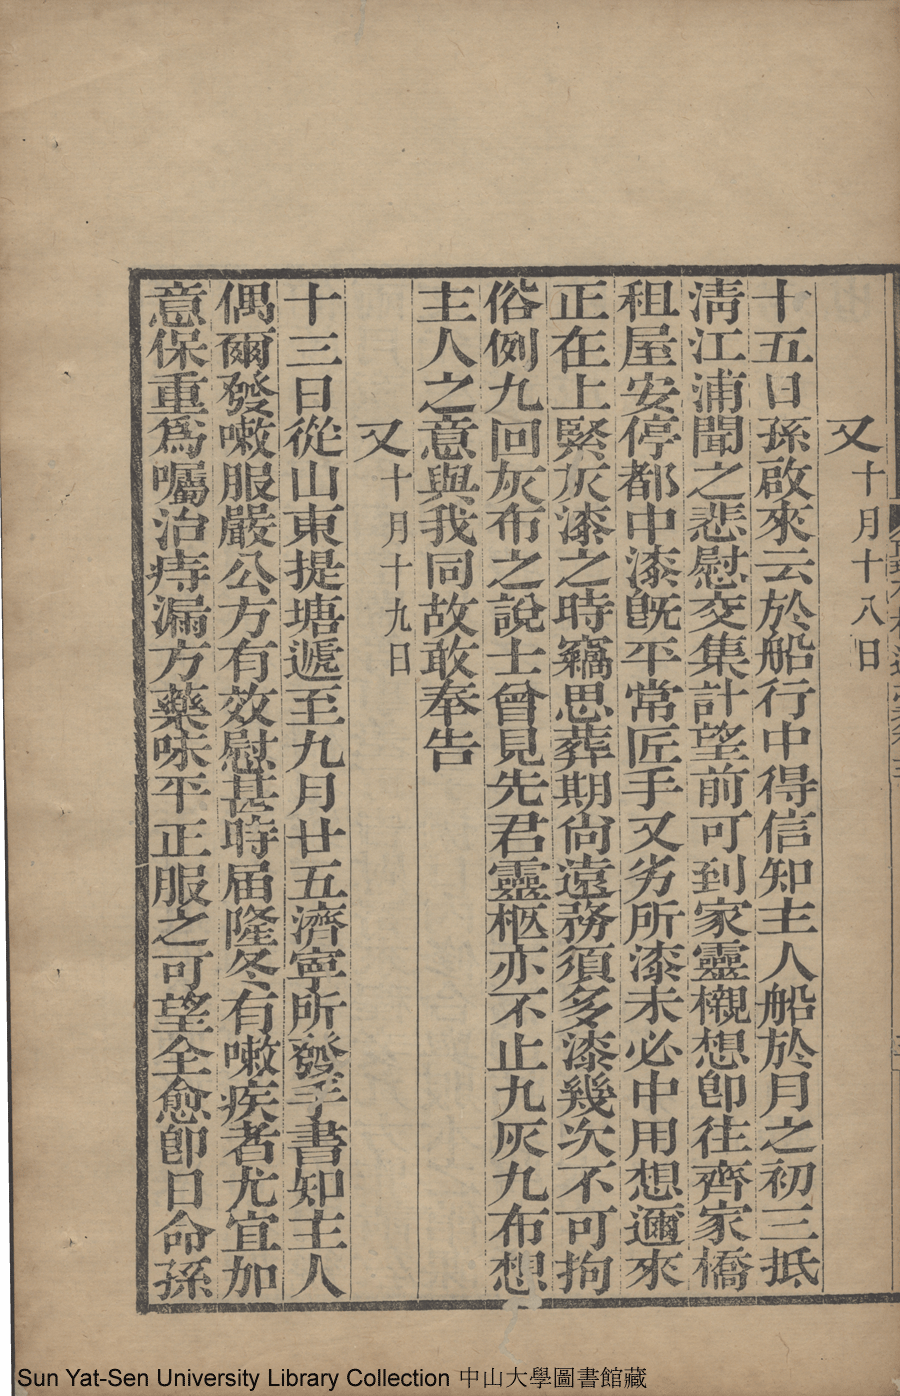 又十月十八日
十五日孫啟來云於船行中得信知主人船於月之初三抵
淸江浦聞之悲慰交集計望前可到家靈櫬想卽往齊家橋
租屋安停都中漆旣平常匠手又劣所漆未必中用想邇來
正在上緊灰漆之時竊思葬期尙遠務須多漆幾次不可拘
俗例九回灰布之說士曾見先君靈柩亦不止九灰九布想
主人之意與我同故敢奉告
又十月十九日
十三日從山東提塘遞至九月廿五濟寧所發手書知主人
偶爾發嗽服嚴公方有效慰甚時届隆冬有嗽疾者尤宜加
意保重爲囑治痔漏方藥味平正服之可望全愈卽日命孫
Sun Yat-Sen University Library Collection 中山大學圖書館藏